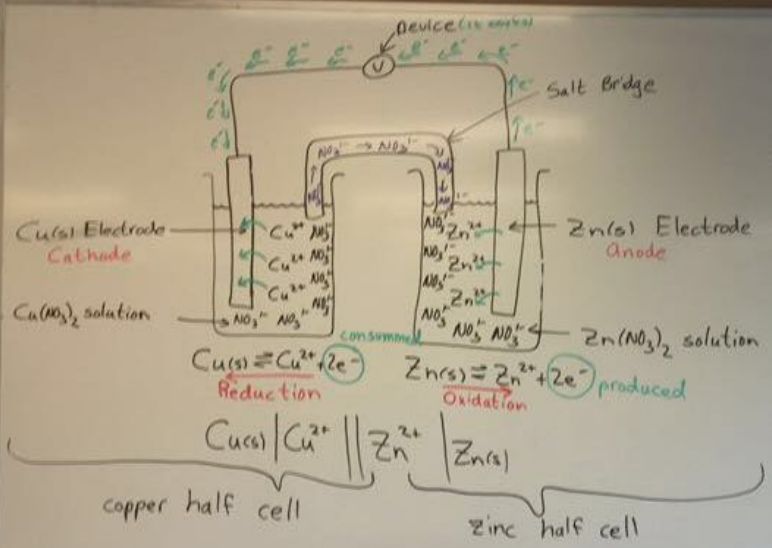 Device
e⁻ e⁻ e⁻ e⁻ e⁻ e⁻
V
e⁻ e⁻
e⁻ e⁻
e⁻
Salt Bridge
NO₃¹⁻ → NO₃¹⁻ →
NO₃ NO₃
Cu(s) Electrode
Cathode
Cu²⁺ NO₃¹⁻
Cu²⁺ NO₃¹⁻
Cu²⁺ NO₃¹⁻
NO₃¹⁻ NO₃¹⁻
Cu(NO₃)₂ solution
NO₃¹⁻ Zn²⁺
NO₃¹⁻ Zn²⁺
NO₃¹⁻ Zn²⁺
NO₃¹⁻ NO₃¹⁻ NO₃¹⁻
Zn(s) Electrode
anode
Zn(NO₃)₂ solution
consummed
Cu(s) ⇌ Cu²⁺ + 2e⁻
Reduction
Zn(s) ⇌ Zn²⁺ + 2e⁻ produced
Oxidation
Cu(s) | Cu²⁺ || Zn²⁺ | Zn(s)
copper half cell
zinc half cell